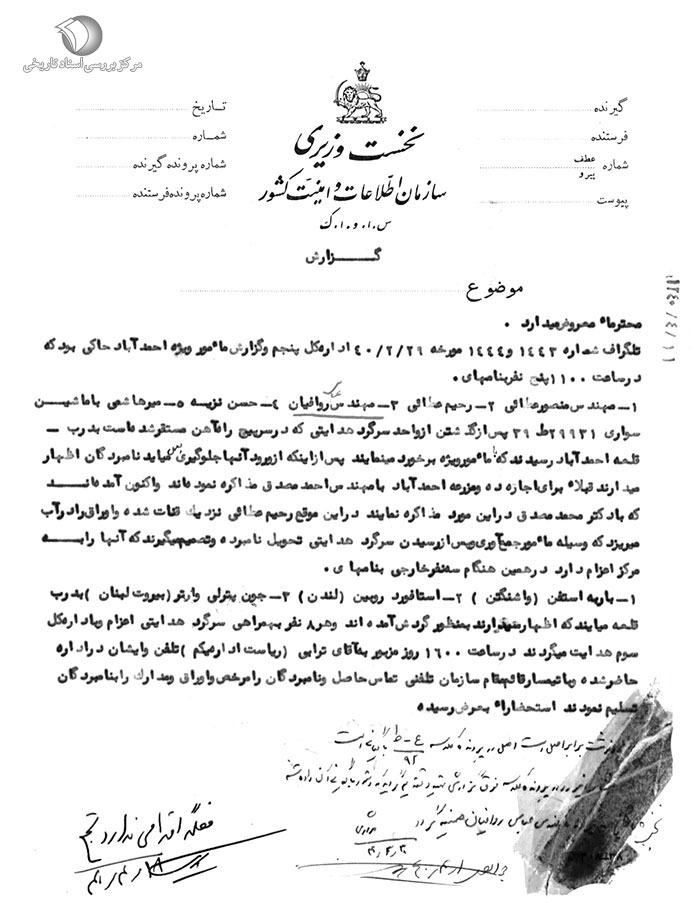 مرکز بررسی اسناد تاریخی
گیرنده
فرستنده
شماره عطف
پیرو
پیوست
نخست وزیری
سازمان اطلاعات و امنیت کشور
س.ا.و.ا.ک
تاریخ
شماره
شماره پرونده گیرنده
شماره پرونده فرستنده
گزارش
موضوع
محترما" معروض میدارد .
تلگراف شماره ۱۴۴۳ و ۱۴۴۴ مورخه ۴۰/۲/۲۹ اداره کل پنجم وگزارش مامور ویژه احمدآباد حاکی بود که
درساعت ۱۱۰۰ پنج نفر بنامهای .
۱- مهندس منصور عطائی ۲- رحیم عطائی ۳- مهندس عباس روافیان ۴- حسن نزیه ۵- میرهاشمی باماشین
سواری ۲۹۹۳۱ ط ۳۹ پس ازگذشتن ازواحد سرگرد هدایتی که درسرپیچ راه آهن مستقر شده است بدرب -
قلعه احمدآباد رسیدند که با مامور ویژه برخورد مینمایند پس ازاینکه ازورود آنها جلوگیری بعمل میاید نامبردگان اظهار
میدارند قبلا" برای اجازه ده ومزرعه احمدآباد بامهندس احمد مصدق مذاکره نموده اند واکنون آمده اند
که بادکتر محمد مصدق دراین مورد مذاکره نمایند دراین موقع رحیم عطائی نزدیک قنات شده واوراق رادرآب
میریزد که وسیله مامور جمع آوری وپس ازرسیدن سرگرد هدایتی تحویل نامبرده وتصمیم میگیرند که آنها رابه
مرکز اعزام دارد درهمین هنگام سه نفر خارجی بنامهای .
۱- باربه استفن (واشنگتن) ۲- استافورد روبین (لندن) ۳- جون پترلی وارتر (بیروت لبنان) بدرب
قلعه میایند که اظهار میدارند بمنظور گردش آمده اند وهر ۸ نفر بهمراهی سرگرد هدایتی اعزام وباداره کل
سوم هدایت میگردند درساعت ۱۶۰۰ روز مزبور به آقای ترابی (ریاست اداره یکم) تلفن وایشان دراداره
حاضرشده وباتیمسار قائم مقام سازمان تلفنی تماس حاصل ونامبردگان رامرخص واوراق ومدارک رابنامبردگان
تسلیم نمودند استحضارا" بعرض رسیده
برابر اصل است اصل در پرونده کلاسه
در پرونده کلاسه فوق
عباس روافیان ضمیمه گردد
فعلا اقدامی ندارد